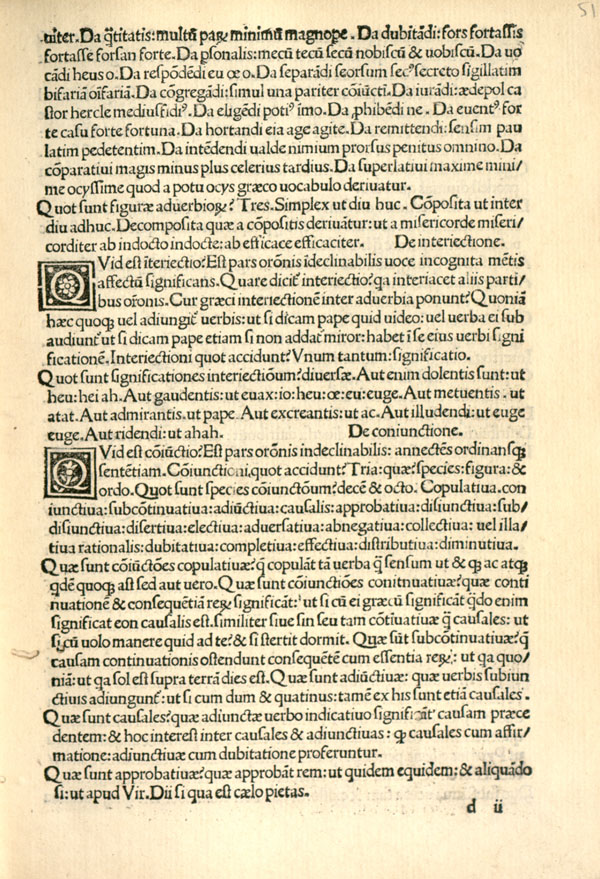 51
titer. Da q̃titatis: multũ paꝝ minimũ magnope. Da dubitãdi: fors fortassis
fortasse forsan forte. Da ꝑsonalis: mecũ tecũ secũ nobiscũ & uobiscũ. Da uo
cãdi heus o. Da respõdẽdi eu œ o. Da separãdi seorsum secꝰ secreto sigillatim
bifariã oĩfariã. Da cõgregãdi: simul una pariter cõiũcti. Da iurãdi: ædepol ca
stor hercle mediusfidiꝰ. Da eligẽdi potiꝰ ĩmo. Da ꝓhibẽdi ne. Da euentꝰ for
te casu forte fortuna. Da hortandi eia age agite. Da remittendi: sensim pau
latim pedetentim. Da intẽdendi ualde nimium prorsus penitus omnino. Da
cõparatiui magis minus plus celerius tardius. Da superlatiui maxime mini/
me ocyssime quod a potu ocys græco uocabulo deriuatur.
Quot sunt figuræ aduerbioꝝ? Tres. Simplex ut diu huc. Cõposita ut inter
diu adhuc. Decomposita quæ a cõpositis deriuãtur: ut a misericorde miseri/
corditer ab indocto indocte: ab efficace efficaciter. De interiectione.
QVid est ĩteriectio? Est pars orõnis ĩdeclinabilis uoce incognita mẽtis
affectũ significans. Quare dicit᷑ interiectio? qa interiacet aliis parti/
bus orõnis. Cur græci interiectionẽ inter aduerbia ponunt? Quoniã
hæc quoqꝫ uel adiungit᷑ uerbis: ut si dicam pape quid uideo: uel uerba ei sub
audiunt᷑ ut si dicam pape etiam si non addat᷑ miror: habet ĩ se eius uerbi signi
ficationẽ. Interiectioni quot accidunt? Vnum tantum: significatio.
Quot sunt significationes interiectiõum? diuersæ. Aut enim dolentis sunt: ut
heu: hei ah. Aut gaudentis: ut euax: io: heu: œ: eu: euge. Aut metuentis. ut
atat. Aut admirantis. ut pape. Aut excreantis: ut ac. Aut illudendi: ut euge
euge. Aut ridendi: ut ahah. De coniunctione.
QVid est cõiũctio? Est pars orõnis indeclinabilis: annectẽs ordinansqꝫ
sentẽtiam. Cõiunctioni, quot accidunt? Tria: quæ? species: figura: &
ordo. Quot sunt species cõiunctõum? decẽ & octo. Copulatiua. con
iunctiua: subcõtinuatiua: adiũctiua: causalis: approbatiua: disiunctiua: sub/
disiunctiua: disertiua: electiua: aduersatiua: abnegatiua: collectiua: uel illa/
tiua rationalis: dubitatiua: completiua: effectiua: distributiua: diminutiua.
Quæ sunt cõiũctões copulatiuæ? q̃ copulãt tã uerba q̃ sensum ut & qꝫ ac atqꝫ
qdẽ quoqꝫ ast sed aut uero. Quæ sunt cõiunctiões conitnuatiuæ? quæ conti
nuationẽ & consequẽtiã reꝝ significãt: ut si cũ ei græcũ significãt q̃do enim
significat eon causalis est. similiter siue sin seu tam cõtiuatiuæ q̃ causales: ut
si cũ uolo manere quid ad te? & si stertit dormit. Quæ sũt subcõtinuatiuæ? q̃
causam continuationis ostendunt consequẽtẽ cum essentia reꝝ: ut qa quo/
niã: ut qa sol est supra terrã dies est. Quæ sunt adiũctiuæ: quæ uerbis subiun
ctiuis adiungunt᷑: ut si cum dum & quatinus: tamẽ ex his sunt etiã causales.
Quæ sunt causales? quæ adiunctæ uerbo indicatiuo significãt causam præce
dentem: & hoc interest inter causales & adiunctiuas: qꝫ causales cum affir/
matione: adiunctiuæ cum dubitatione proferuntur.
Quæ sunt approbatiuæ? quæ approbãt rem: ut quidem equidem: & aliquãdo
si: ut apud Vir. Dii si qua est cælo pietas.
d ii